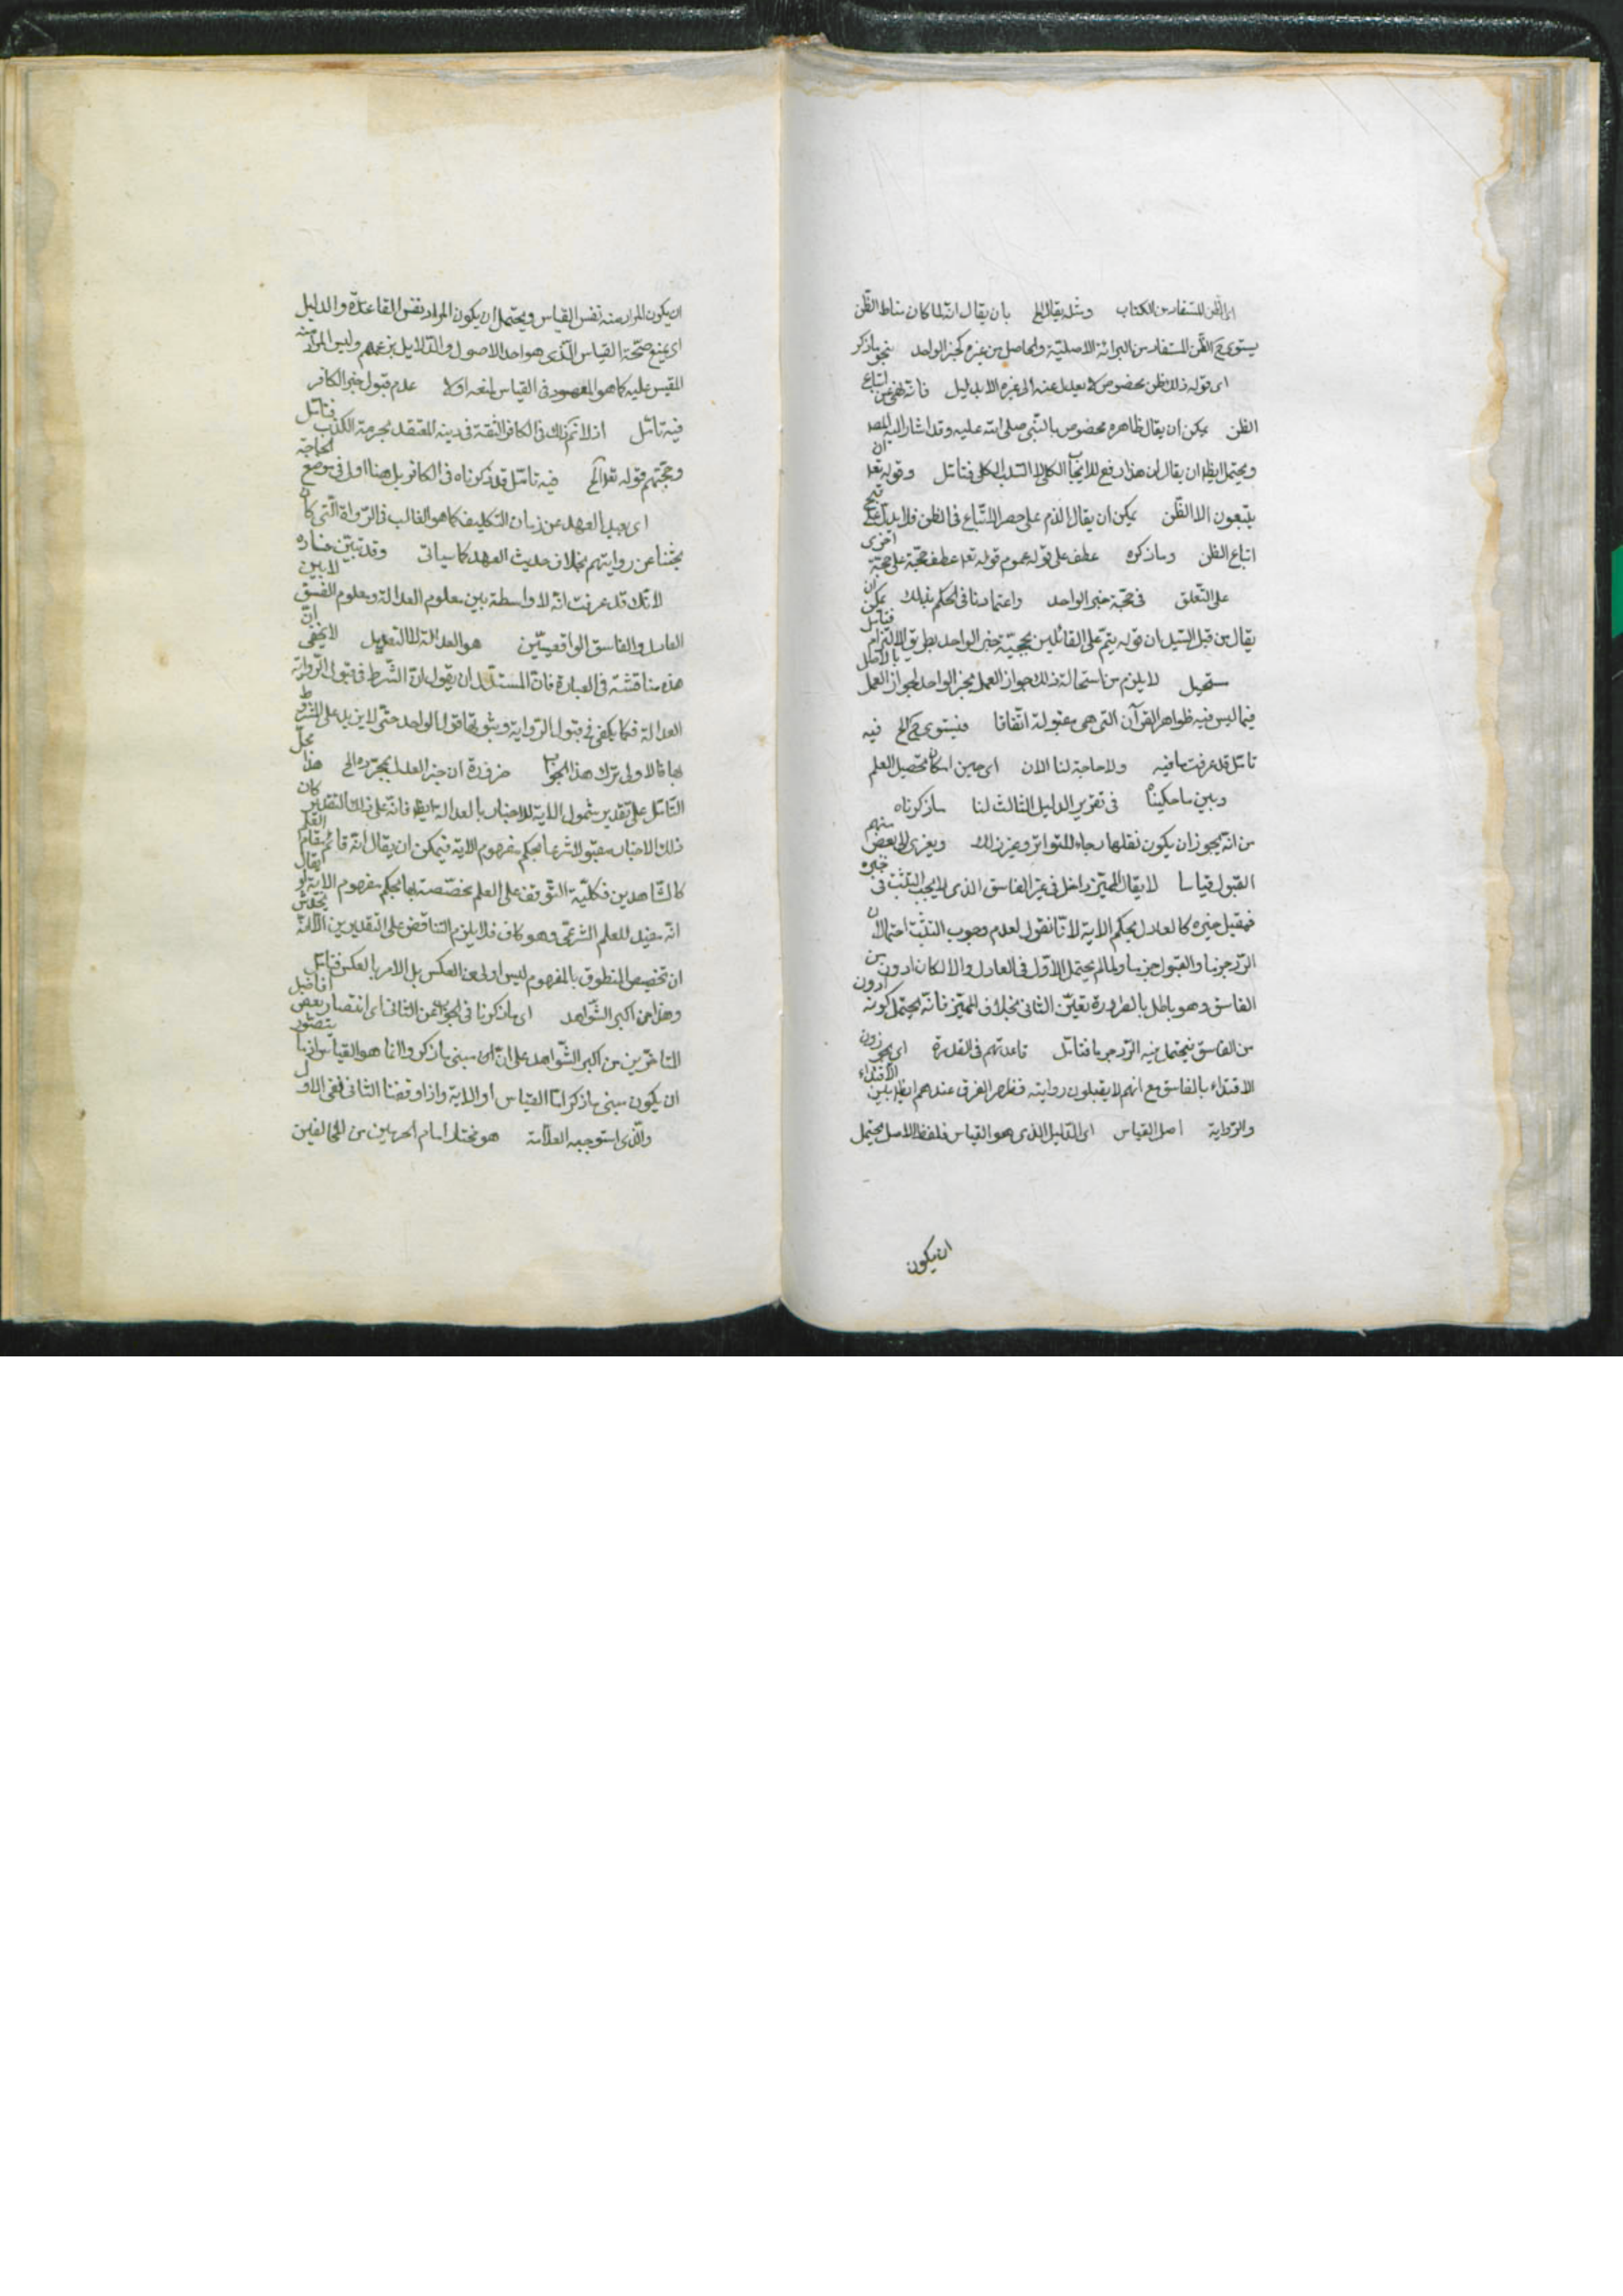 الظن المستفاد من الكتاب ومثله يقال الخ بان يقال انه لما كان مناط الظن
يستوى ح الظن المستفاد من البرائة الاصلية والحاصل من غيره كخبر الواحد بنحو ما ذكر
اى قوله ذلك ظن مخصوص لا يعدل عنه الى غيره الا بدليل فانه نهى عن اتباع
الظن يمكن ان يقال ظاهره مخصوص بالنبى صلى الله عليه وقد اشار اليه المص
ويحتمل ايظا ان يقال ان هذا رفع للايجاب الكلى لا السلب الكلى فتامل وقوله تعا ان
يتبعون الا الظن يمكن ان يقال الذم على حصر الاتباع فى الظن فلا يدل على قبح
اتباع الظن وما ذكره عطف على قوله عموم قوله تعا عطف حجة على حجة اخرى
على التعلق فى حجية خبر الواحد واعتمادنا فى الحكم بذلك يمكن ان
يقال من قبل السيد ان قوله يتم على القائلين بحجية خبر الواحد بطريق الالزام فتامل
مستحيل لا يلزم من استحالة ذلك جواز العمل بخبر الواحد لجواز العمل بالاصل
فيما ليس فيه ظواهر القرآن التى هى مقبولة اتفاقا فيستوى ح الخ فيه
تامل قد عرفت ما فيه ولا حاجة لنا الان اى حين امكان تحصيل العلم
وبين ما حكيناه فى تقرير الدليل الثالث لنا ما ذكرناه
من انه يجوز ان يكون نقلها رجاء للتواتر وغير ذلك ويعزى الى بعض منهم
القبول قياسا لا يقال المميز داخل فى غير الفاسق الذى لا يجب التثبت فى خبره
فيقبل خبره كالعادل بحكم الاية لانا نقول لعدم وجوب التثبت احتمالان
الرد جزما والقبول جزما ولما لم يحتمل الاول فى العادل والا لكان ادون من
الفاسق وهو باطل بالضرورة تعين الثانى بخلاف المميز فانه يحتمل كونه ادون
من الفاسق فيحتمل فيه الرد جزما فتامل قاعدتهم فى القدوة اى يجوزون
الاقتداء بالفاسق مع انهم لا يقبلون روايته فظهر الفرق عندهم ايظا بين الاقتداء
والرواية اصل القياس اى الدليل الذى هو القياس فلفظ الاصل يحتمل
ان يكون
ان يكون المراد منه نفس القياس ويحتمل ان يكون المراد نفس القاعدة والدليل
اى يمنع صحة القياس الذى هو احد الاصول والدلايل بزعمهم وليس المراد منه
المقيس عليه كما هو المعهود فى القياس لمنعه اولا عدم قبول خبر الكافر
فيه تامل اذ لا تم ذلك فى الكافر الثقة فى دينه المعتقد بحرمة الكذب فتامل
وحجتهم قوله تعا الخ فيه تامل قد ذكرناه فى الكافر بل هنا اولى فى موضع الحاجة
اى بعيد العهد عن زمان التكليف كما هو الغالب فى الرواة التى كان
بحثنا عن روايتهم بخلاف حديث العهد كما سياتى وقد تبين فساده
لانك قد عرفت انه لا واسطة بين معلوم العدالة ومعلوم الفسق لا بين
العادل والفاسق الواقعيين هو العدالة لا التعديل لا يخفى ان
هذه مناقشة فى العبارة فان المستدل ان يقول ان الشرط فى قبول الرواية
العدالة فكما يكفى فى قبول الرواية وثبوتها قول الواحد حتى لا يزيد على المشروط
بها فالاولى ترك هذا الجواب ضرورة ان خبر العدل بمجرده الخ هذا محل
التامل على تقدير شمول الاية للاخبار بالعدالة ايظا فانه على ذلك التقدير كان
ذلك الاخبار مقبولا شرعا بحكم مفهوم الاية فيمكن ان يقال انه قائم مقام العلم
كالشاهدين فكلية التوقف على العلم مخصصة بها بحكم مفهوم الاية او يقال
انه مفيد للعلم الشرعى وهو كاف فلا يلزم التناقض على التقديرين الا انه يخدش
ان تخصيص المنطوق بالمفهوم ليس اولى من العكس بل الامر بالعكس فتامل
وهذا من اكبر الشواهد اى ما ذكرنا فى الجواب عن الثانى اى انتصار بعض افاضل
المتاخرين من اكبر الشواهد على ان اى مبنى ما ذكروا انما هو القياس اذ ما يتصور
ان يكون مبنى ما ذكر اما القياس او الاية واذا رفضنا الثانى بقى الاول
والذى استوجبه العلامة هو مختار امام الحرمين من المخالفين